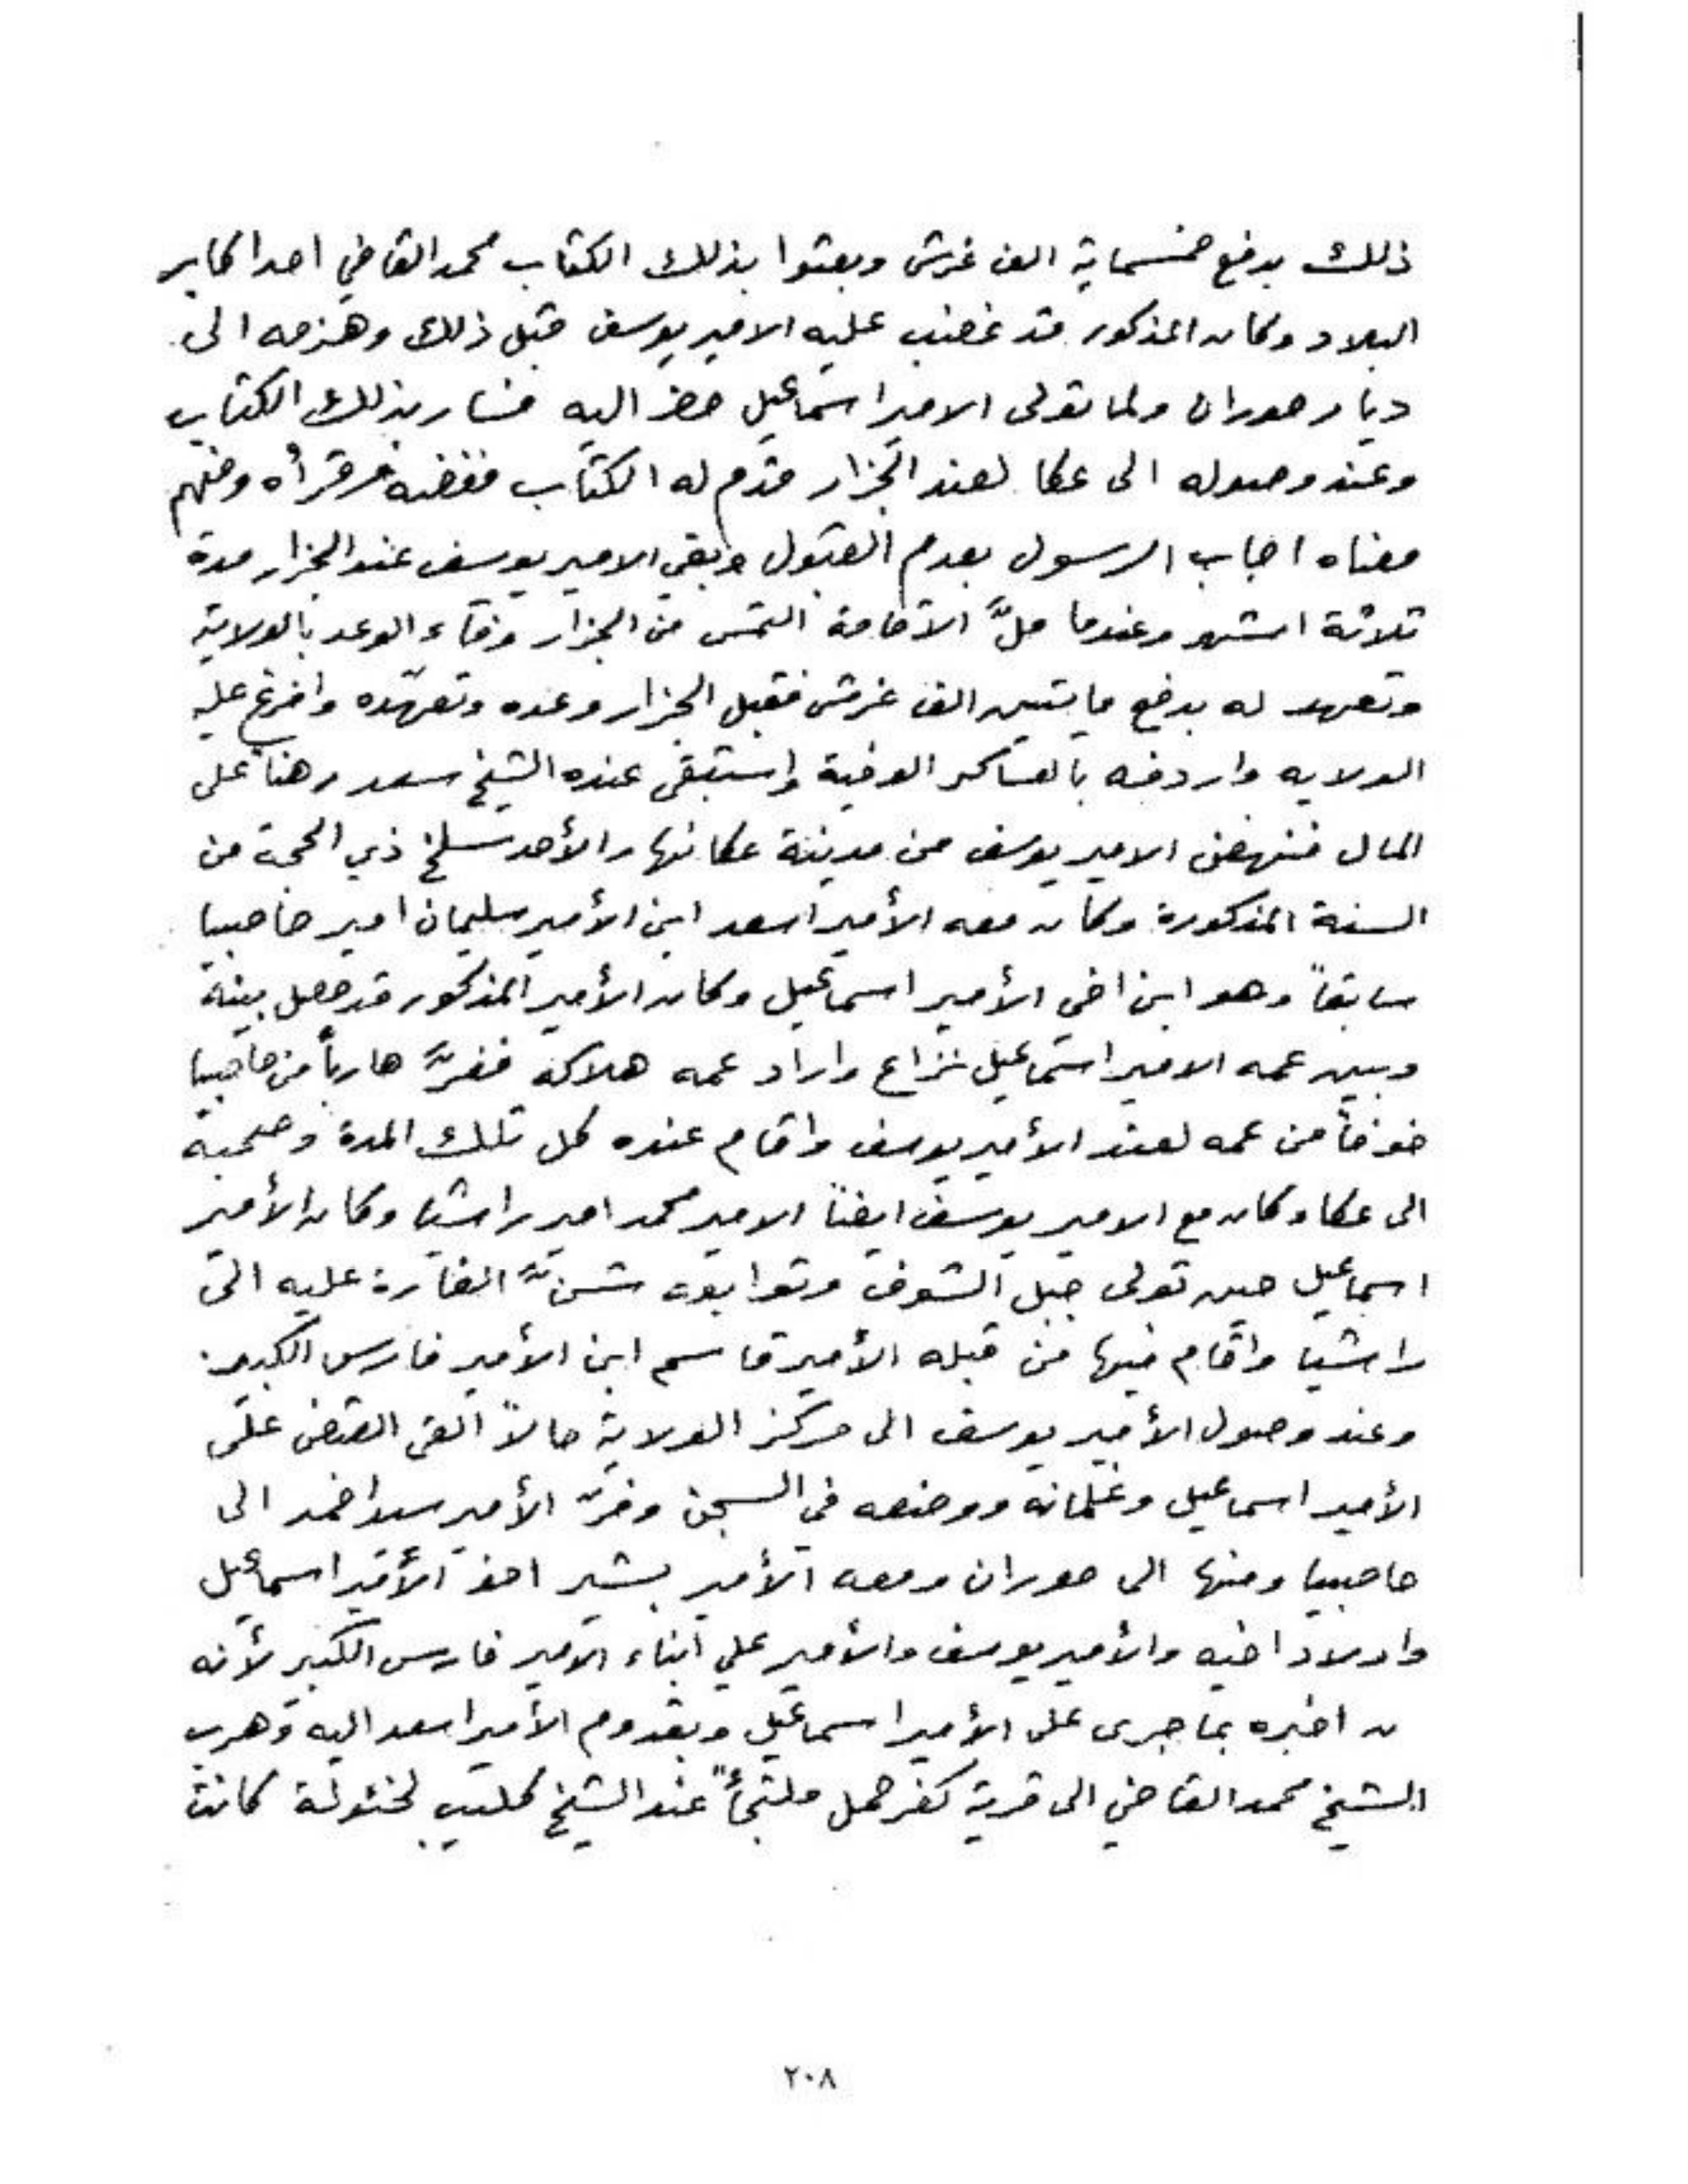 ذلك بدفع خمسماية الف غرش وبعثوا بذلك الكتاب محمد القاضي احد اكابر
البلاد وكان المذكور قد غضب عليه الامير يوسف قبل ذلك وهزمه الى
ديار حوران ولما تولى الامير اسماعيل حضر اليه فسار بذلك الكتاب
وعند وصوله الى عكا لعند الجزار قدم له الكتاب ففضه قرأه وفهم
معناه اجاب الرسول بعدم القبول وبقي الامير يوسف عند الجزار مدة
ثلاثة اشهر وعندما ملَّ الاقامة التمس من الجزار وفاء الوعد بالولاية
وتعهد له بدفع مايتين الف غرش فقبل الجزار وعده وتعهّده وافرغ عليه
الولايه واردفه بالعساكر الوفية واستبقى عنده الشيخ سعد رهناً على
المال فنهض الامير يوسف من مدينة عكا نهار الأحد سلخ ذي الحجة من
السنة المذكورة وكان معه الأمير اسعد ابن الأمير سليمان امير حاصبيا
سابقاً وهو ابن اخي الأمير اسماعيل وكان الأمير المذكور قد حصل بينه
وبين عمه الامير اسماعيل نزاع واراد عمه هلاكه ففرَّ هارباً من حاصبيا
خوفاً من عمه لعند الأمير يوسف واقام عنده كل تلك المدة وصحبه
الى عكا وكان مع الامير يوسف ايضاً الامير محمد امير راشيا وكان الأمير
اسماعيل حين تولى جبل الشوف وتوابعه شنَّ الغارة عليه الى
راشيا واقام فيها من قبله الأمير قاسم ابن الأمير فارس الكبير.
وعند وصول الأمير يوسف الى مركز الولاية حالاً القى القبض على
الأمير اسماعيل وغلمانه ووضعه في السجن وفرّ الأمير سيد احمد الى
حاصبيا ومنها الى حوران ومعه الأمير بشير اخو الأمير اسماعيل
واولاد اخيه والأمير يوسف والأمير علي ابناء الامير فارس الكبير لأنه
اخبره بما جرى على الأمير اسماعيل وبقدوم الأمير اسعد اليه وهرب
الشيخ محمد القاضي الى قرية كفر حمل ملتجأً عند الشيخ كليب لخئولة كانت
٢٠٨